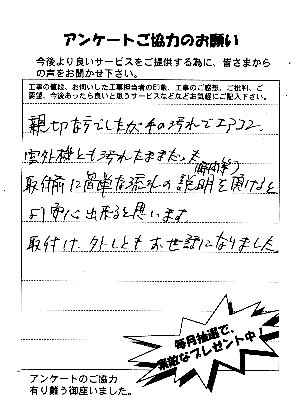 アンケートご協力のお願い
今後より良いサービスをご提供する為に、皆さまから
の声をお聞かせ下さい。
工事の値段、お伺いした工事担当者の印象、工事のご感想、ご批判、ご
要望、今後あったら良いと思うサービスなどなどお気軽にご記入下さい。
親切な方でしたが手の汚れでエアコン、
室外機とも汚れたままだった
取付前に簡単な流れの説明を頂けると
(時間等)
より安心出来ると思います
取付け、外しともお世話になりました
毎月抽選で、
素敵なプレゼント中!
アンケートのご協力
有り難う御座いました。